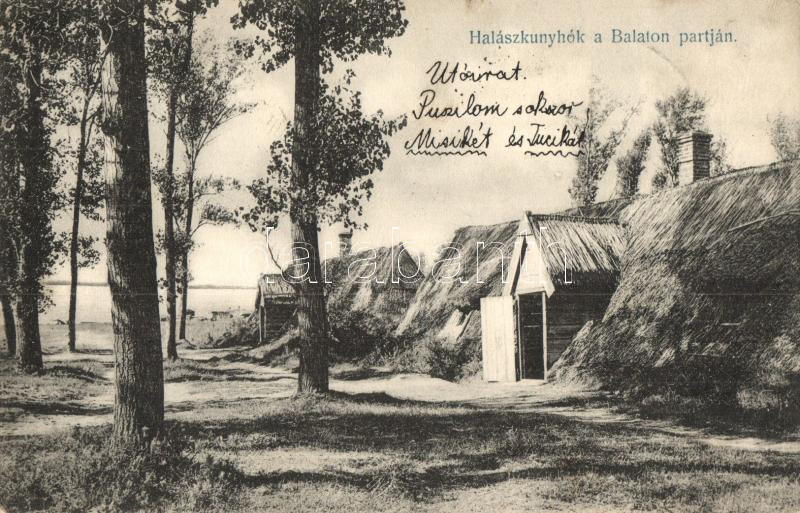 Halászkunyhók a Balaton partján.
Utóirat.
Puszilom sokszor
Misikét és Tucikát
darabanth